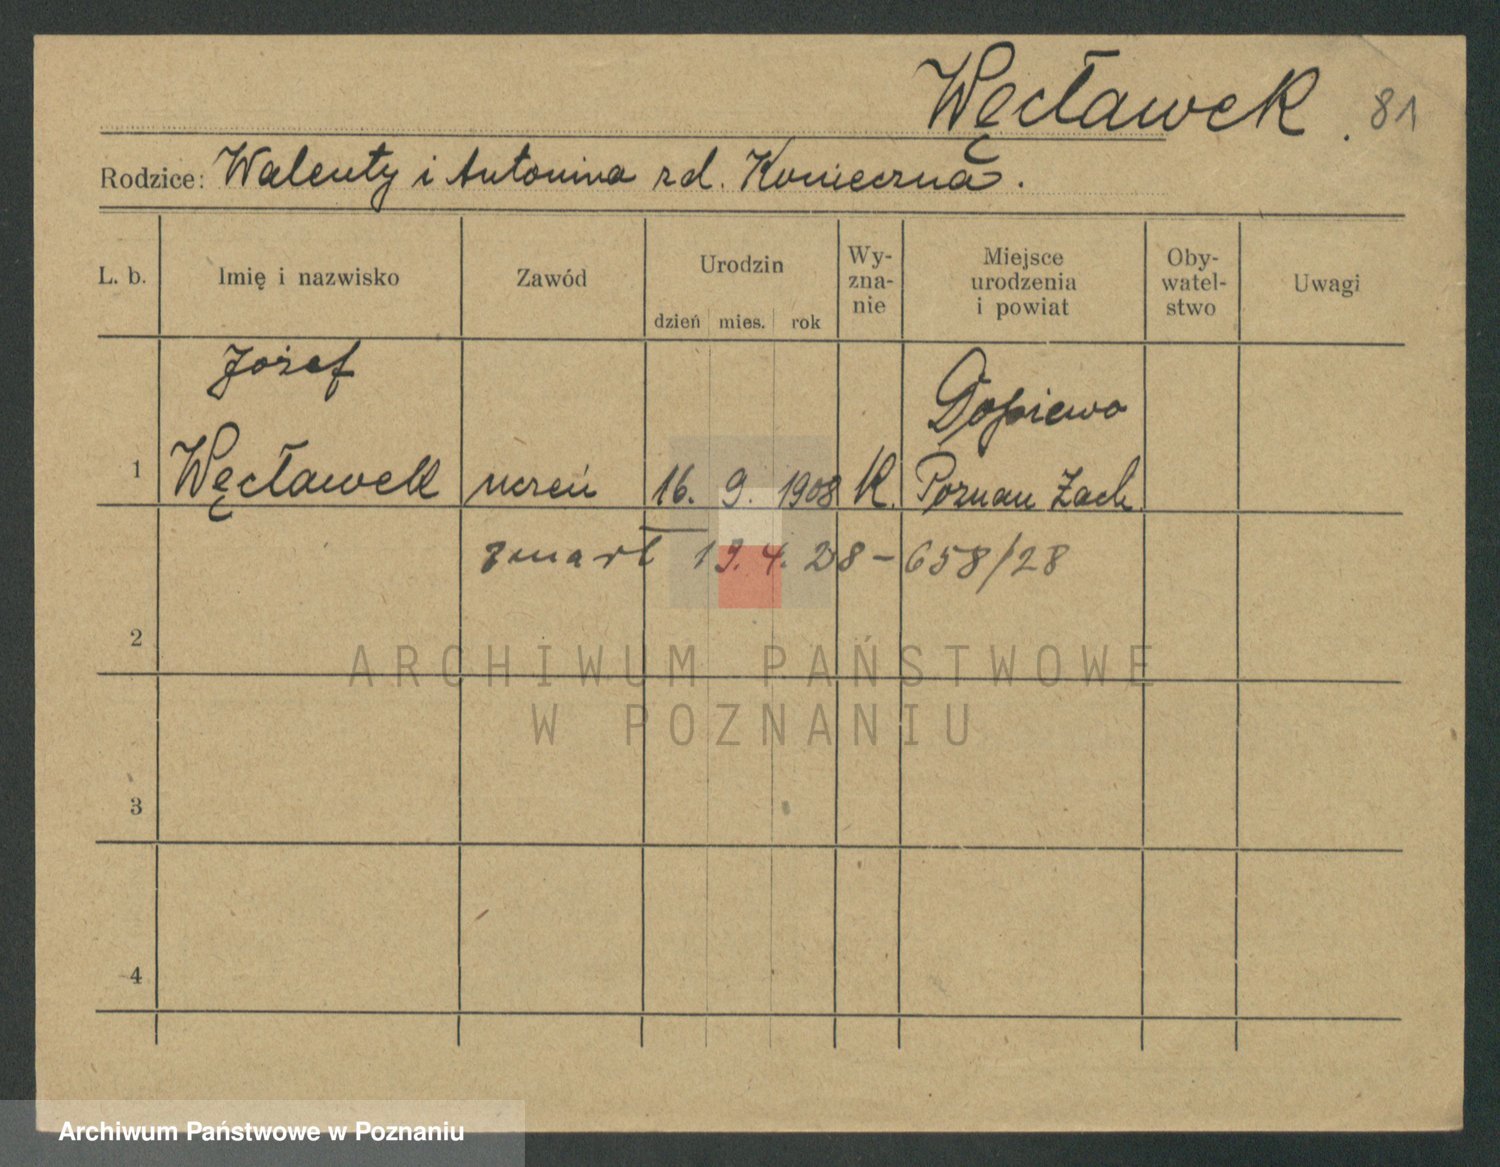 Węcławek . 81
Rodzice: Walenty i Antonina zd. Konieczna.
L. b. Imię i nazwisko Zawód Urodzin Wy-zna-nie Miejsce urodzenia i powiat Oby-watel-stwo Uwagi
dzień mies. rok
Józef
Dopiewo
1 Węcławek uczeń 16. 9. 1908 K. Poznan Zach
zmarł 13. 4. 28 – 658/28
2
ARCHIWUM PAŃSTWOWE
W POZNANIU
3
4
Archiwum Państwowe w Poznaniu